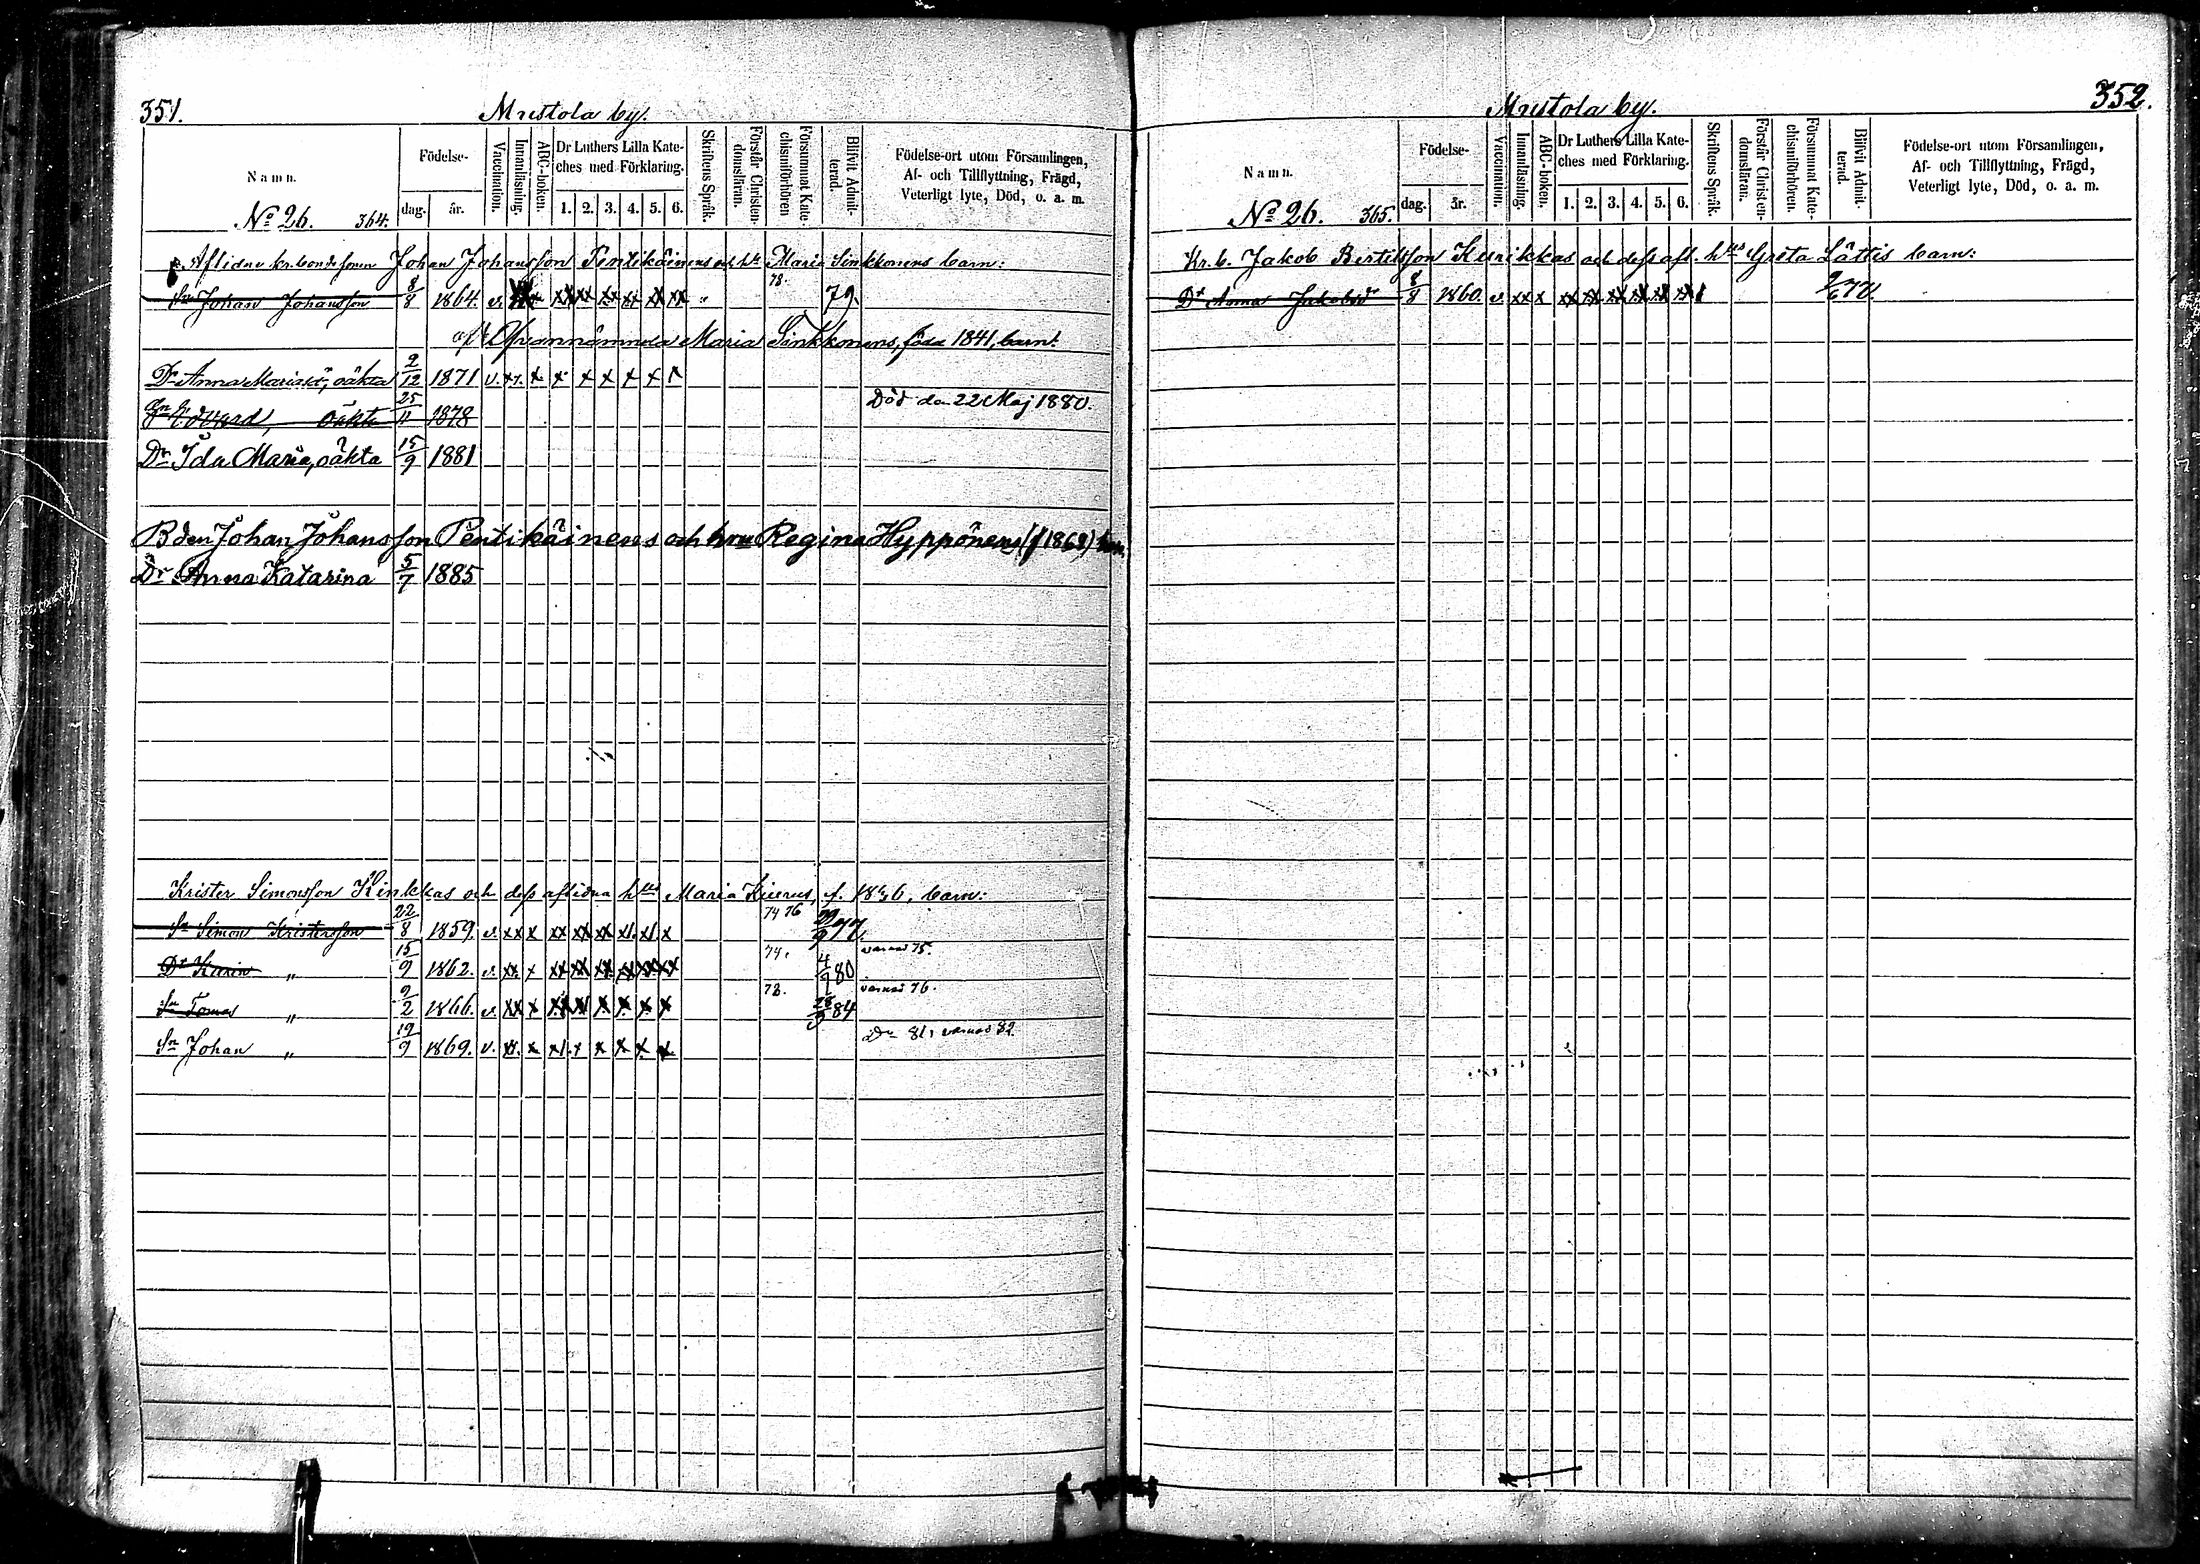 351.
Mustola by.
Namn.
Födelse-
dag.
år.
Vaccination.
Innanläsning.
ABC-boken.
Dr Luthers Lilla Kate-
ches med Förklaring.
1. 2. 3. 4. 5. 6.
Skriftens Språk.
Förstår Christen-
domsläran.
Försummat Kate-
chismiförhören
Blifvit Admit-
terad.
Födelse-ort utom Församlingen,
Af- och Tillflyttning, Frägd,
Veterligt lyte, Död, o. a. m.
No 26. 364.
Aflidne kr. bondesonen Johan Johansson Pentikäinens och h. Maria Sinkkonens barn:
Sn Johan Johansson 8/8 1864. v. 78. 79.
Ofvannämnda Maria Sinkkonens, född 1841, barn:
Dr Anna Mariasdr, oäkta 2/12 1871 v.
Sn Edvard, oäkta 25/11 1878 Död den 22 Maj 1880.
Dr Ida Maria, oäkta 15/9 1881
Bden Johan Johansson Pentikäinens och hru Regina Hyppönens (f 1868) barn
Dr Anna Katarina 5/7 1885
Krister Simonsson Kinkkas och dess aflidna hus Maria Kiurus, f. 1836, barn:
Sn Simon Kristersson 22/8 1859. v. xx x xx xx xx x 74 76 77.
Dr Karin " 15/9 1862. v. 74. 4/7 80 varnad 75.
Sn Tomas " 9/2 1866. v. 78. 84 varnad 76.
Sn Johan " 19/9 1869. v. 81, varnad 82
352.
Mustola by.
Namn.
Födelse-
dag.
år.
Vaccination.
Innanläsning.
ABC-boken.
Dr Luthers Lilla Kate-
ches med Förklaring.
1. 2. 3. 4. 5. 6.
Skriftens Språk.
Förstår Christen-
domsläran.
Försummat Kate-
chismiförhören.
Blifvit Admit-
terad.
Födelse-ort utom Församlingen,
Af- och Tillflyttning, Frägd,
Veterligt lyte, Död, o. a. m.
No 26. 365.
Kr. b. Jakob Bertilsson Kurikkas och dess afl. hus Greta Lättis barn:
Dr Anna Jakobsdr 8/8 1860. v xx x xx xx xx xx xx xx